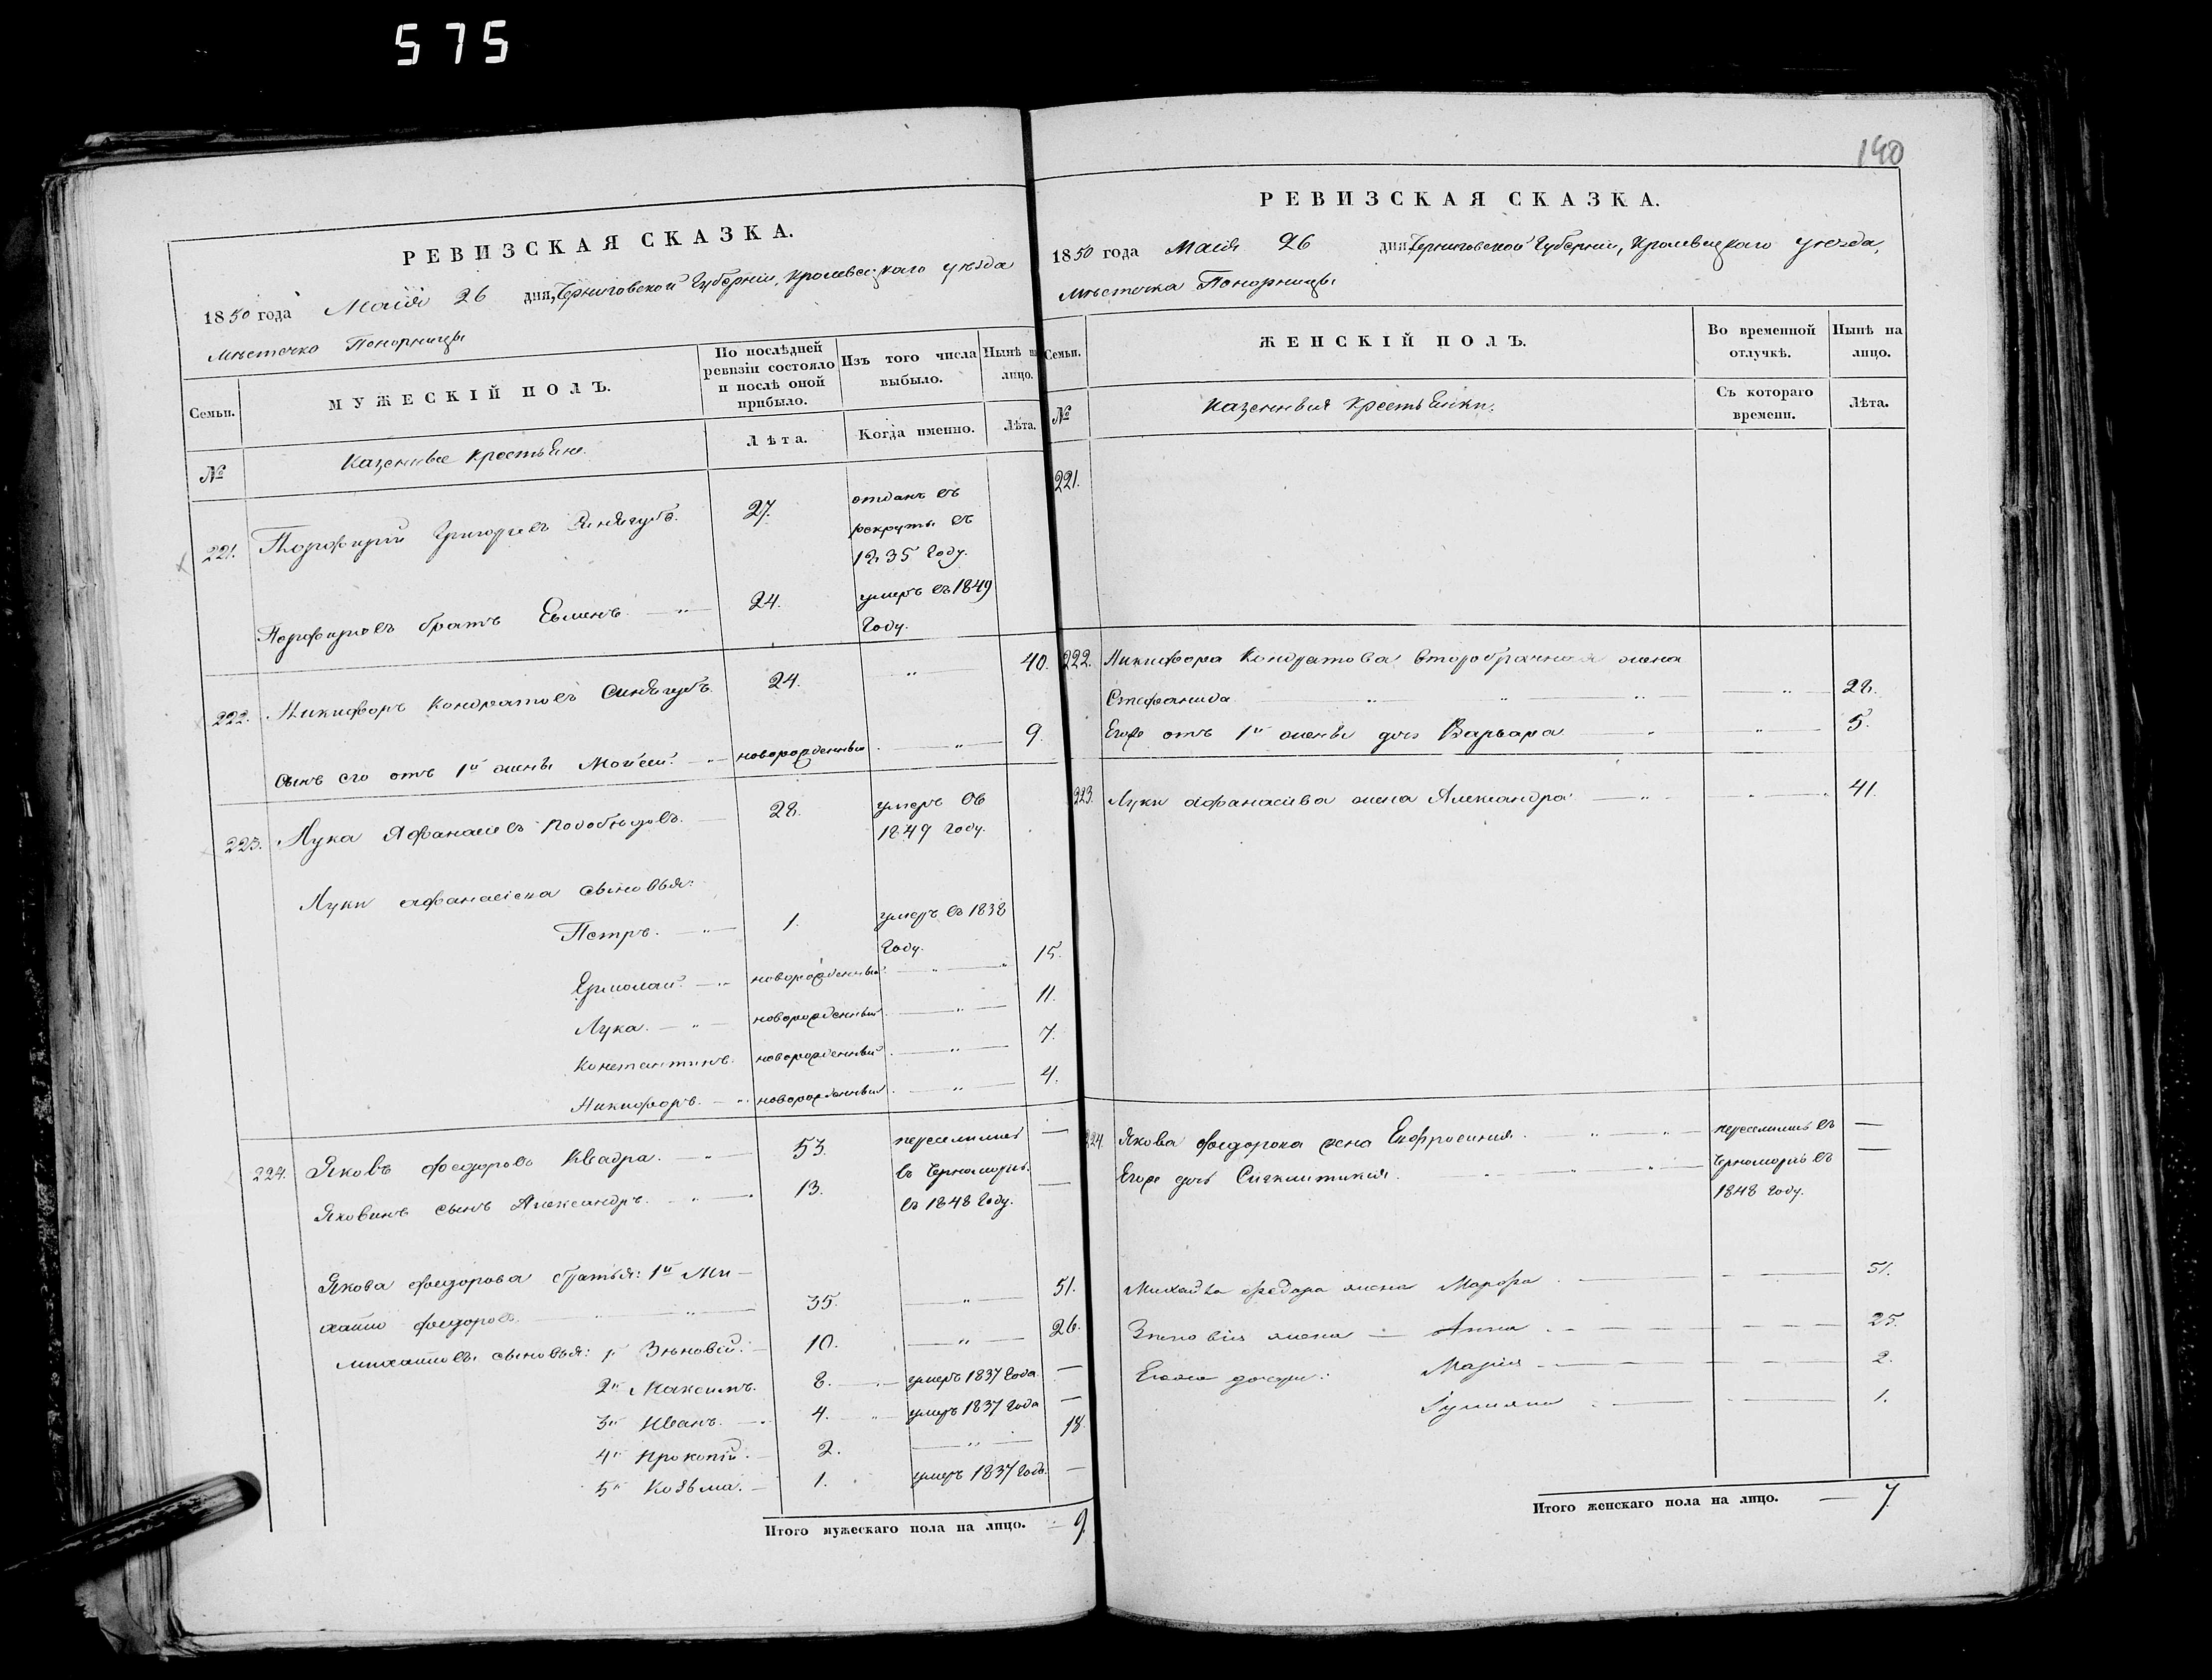 575
РЕВИЗСКАЯ СКАЗКА.
1850 года Маія 26 дня, Черниговской Губерніи, Кролевецкаго уѣзда
Мѣстечко Понорницы
Семьи.
МУЖЕСКІЙ ПОЛЪ.
По послѣдней ревизіи состояло и послѣ оной прибыло.
Изъ того числа выбыло.
Нынѣ на лицо.
№
Казенные Крестьяне.
Лѣта.
Когда именно.
Лѣта.
221. Порфирій Григорьевъ Синягубъ. 27. отданъ въ
рекруты въ
1835 году.
Порфиріевъ братъ Евменъ. — „ — 24. умеръ въ 1849
Году.
222. Никифоръ Кондратовъ Синягубъ. 24. „ 40.
Сынъ его отъ 1й жены Мойсей. — новорожденный. — „ — 9.
223. Лука Афанасіевъ 28. умеръ въ
1849 году.
Луки Афанасіева сыновья:
Петръ. — „ — 1. умеръ въ 1838
Году.
Ермолай. — новорожденный. — „ — 15.
Лука. — „ — новорожденный. — „ — 11.
Константинъ. новорожденный. — „ — 7.
Никифоръ. — „ новорожденный. — „ — 4.
224. Яковъ Федоровъ Квадра. — „ — 53. переселились —
въ Черноморію
Яковинъ сынъ Александръ. — „ — 13. въ 1848 Году. —
Якова Федорова братья: 1й Ми-
хайло Федоровъ — „ — 35. — „ — 51.
Михайловы сыновья: 1й Зѣновій. — 10. — „ — 26.
2й Максимъ. 8. — умеръ 1837 Года —
3й Иванъ. — 4. „ умеръ 1837 Года —
4й Прокопій. — 2. — „ — 18.
5й Козьма. — 1. умеръ 1837 Года. —
Итого мужескаго пола на лицо. — 9.
140
РЕВИЗСКАЯ СКАЗКА.
1850 года Маія 26 дня Черниговской Губерніи, Кролевецкаго уѣзда,
Мѣстечка Понорницы
Семьи.
ЖЕНСКІЙ ПОЛЪ.
Во временной отлучкѣ.
Нынѣ на лицо.
№
Казенныя Крестьянки.
Съ котораго времени.
Лѣта.
221.
222. Никифора Кондратова второбрачная жена
Стефанида — „ — „ — 28.
Егоже отъ 1й жены дочь Варвара — „ — „ — 5.
223. Луки Афанасіева жена Александра — „ — „ — 41.
224. Якова Федорова жена Ефросинія. „ — „ — переселились въ —
Егоже дочь — „ — „ — Черноморію въ —
1848 году.
Михайла Федора жена Марфа. — 51.
Зиновія жена — Анна. — 25.
Егоже дочери: Марія — 2.
1.
Итого женскаго пола на лицо. — 7